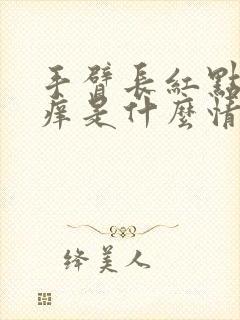 手臂長紅點
痒是什麼情
绛美人